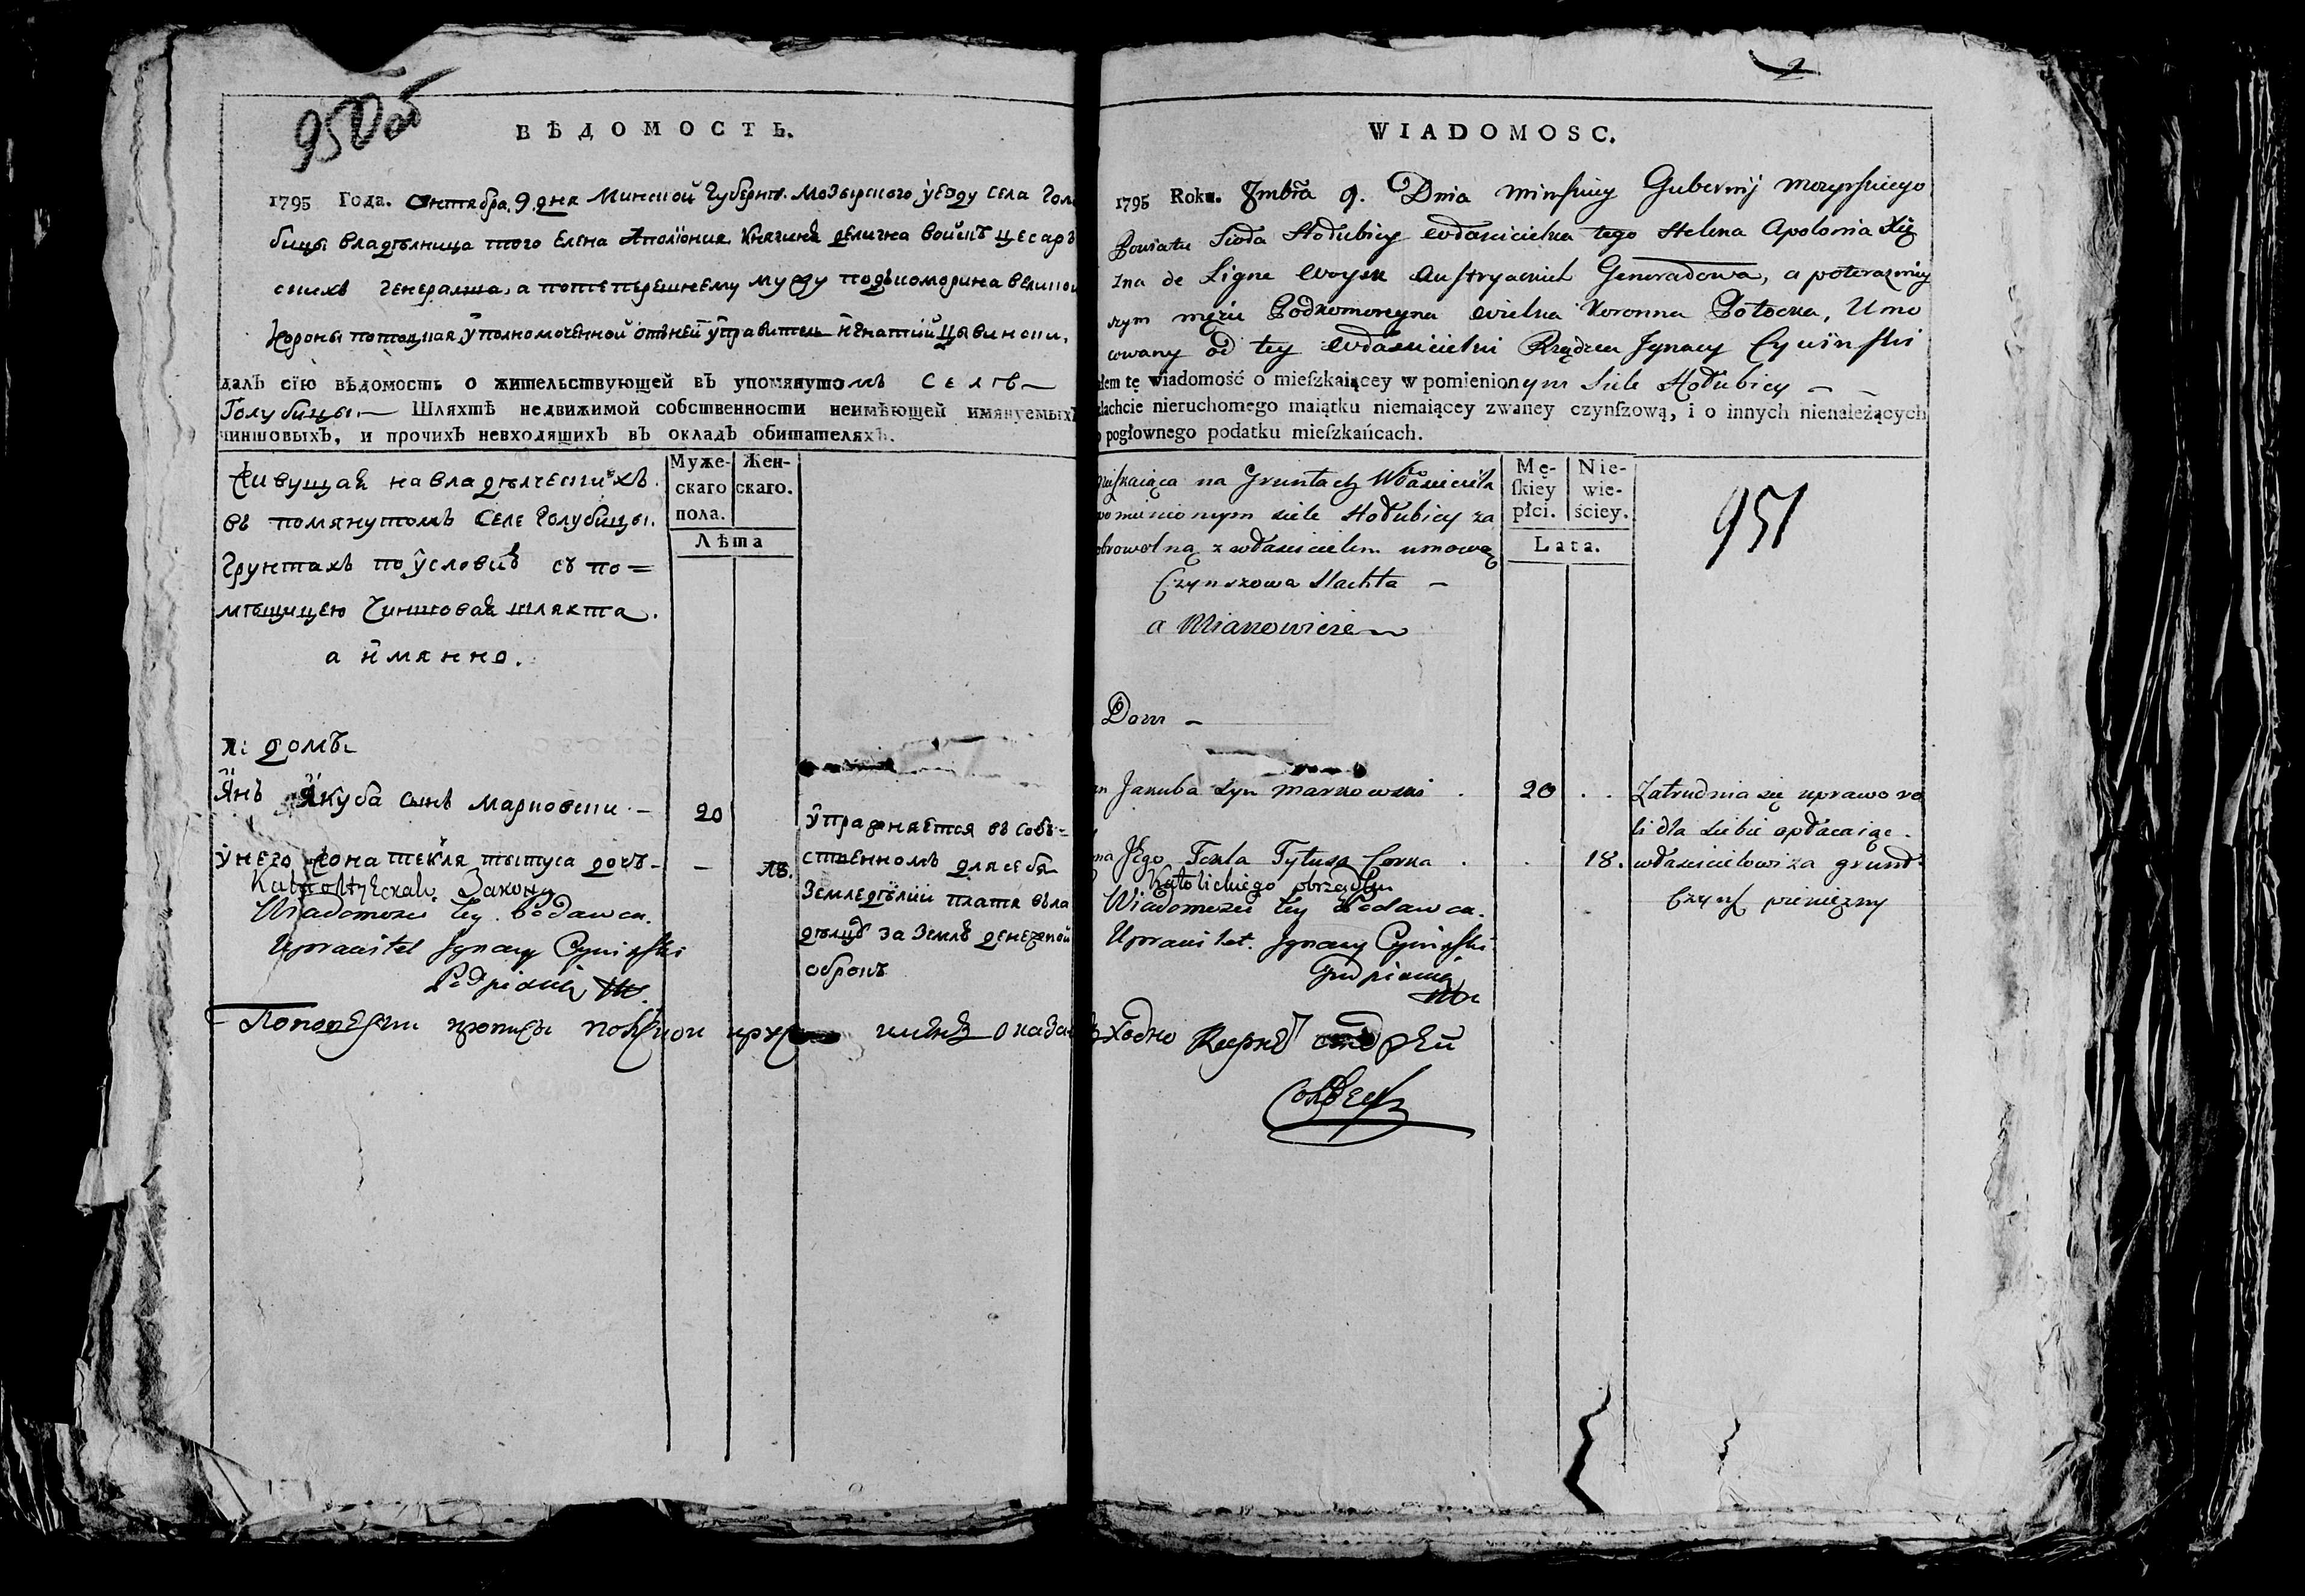 950 об
ВѢДОМОСТЬ.
1795 Года. Октября 9 дня Минской Губернїи Мозырского уезду села Голу
бицы владѣлница того Елена Аполїония Княгиня делигна войскъ цесар
скихъ Генералша, а потеперешнему мужу подъкоморина великой
Короны потоцкая, уполномоченной отъней управитель Игнатїй Цывински.
далъ сїю вѣдомость о жительствующей въ упомянутомъ Селѣ
Голубицы Шляхтѣ недвижимой собственности неимѣющей имянуемыхъ
чиншовыхъ, и прочихъ невходящихъ въ окладъ обитателяхъ.
Живущая на владѣлческихъ
въ помянутомъ Селе Голубицы.
Грунтахъ по условию съ по=
мѣщицею Чиншовая шляхта.
а имянно.
Муже-
скаго
пола.
Жен-
скаго.
Лѣта
1: домъ
Янъ Якуба сынъ Марковски — 20
у него жона текля тытуса дочъ — — 18.
упражняется въ собъ=
ственномъ для себя
Земледѣлии платя вла
дѣлцѣ за Землю денежной
оброкъ
Законн
Wiadomosci tey Podawca.
Uprawitel Jgnacy Cywinski
Podpisuię
2
WIADOMOSC.
1795 Roku. 8mbra 9. Dnia Minskiey Gubernij Mozyrskiego
Powiatu Sioła Hołubicy właścicielka tego Helena Apolonia Xię
zna de Ligne woysk Austryackich Generałowa, a poterazniey
szym mężu Podkomorzyna wielka Koronna Potocka, Umo
cowany od tey właścicielki Rządca Jgnacy Cywiński
ałem tę wiadomość o mieſzkaiącey w pomienionym Siele Hołubicy —
zlachcie nieruchomego maiątku niemaiącey zwaney czynſzową, i o innych nienależących
o pogłownego podatku mieſzkańcach.
mieszkaiąca na Gruntach Właściciela
pomienionym siele Hołubicy za
obrowolną z właścicielem umową
Czynszowa Slachta —
a Mianowicie
Mę-
ſkiey
płci.
Nie-
wie-
ściey.
Lata.
951
Dom —
an Jakuba Syn Markowski . 20 . .
ona Jego Tekla Tytusa Corka . . 18.
Zatrudnia się uprawo ro
li dla siebie opłacaiąc
właścicielowi za grunt
Czynſz pieniężny
Katolickiego obrządku
Wiadomosci tey Podawca.
Uprawitel. Jgnacy Cywinski
Podpisuię